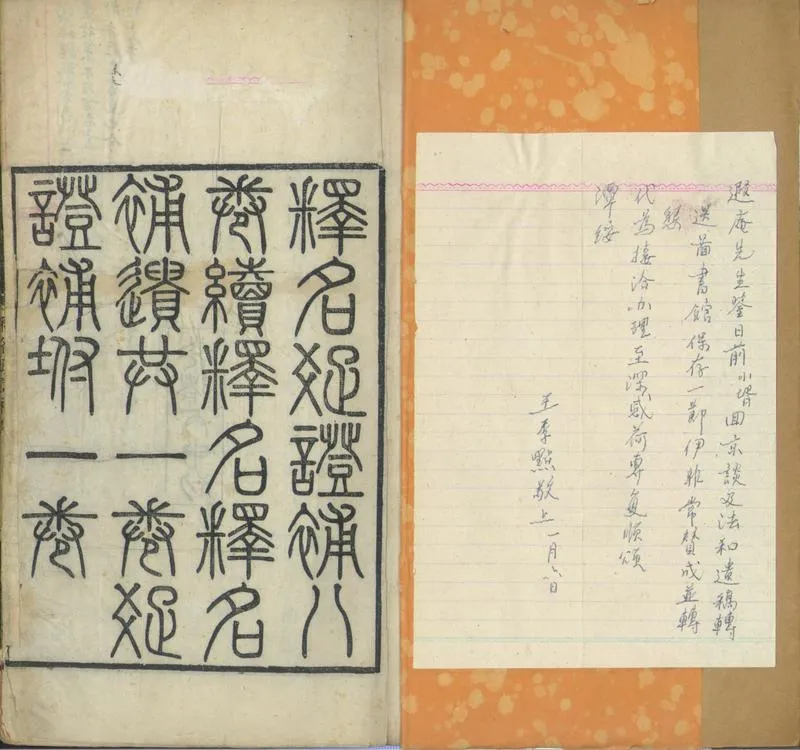 遐庵先生鑒日前小壻回京談及法和遺稿轉
送圖書館保存一節伊非常贊成並轉
懇
代為接洽办理至深感荷專復順頌
潭綏
王季點敬上一月六日
釋名疏證補八
卷續釋名釋名
補遺共一卷疏
證補坿一卷